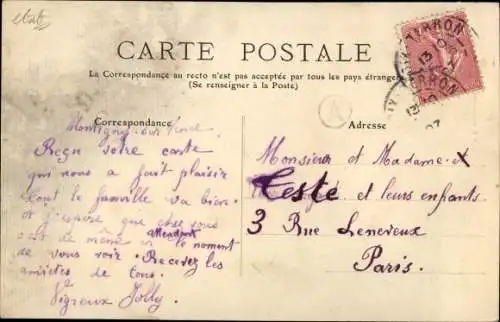 CARTE POSTALE
La Correspondance au recto n'est pas acceptée par tous les pays étrangers
(Se renseigner à la Poste)
Correspondance
Montigny sur
Reçu votre carte
qui nous a fait plaisir
tout la famille va bien
et j'espère que chez vous
est de même attendant le moment
de vous voir. Recevez les
amitiés de tous.
Vigreux Jolly
A
Adresse
Monsieur et Madame
Teste et leurs enfants
3 Rue Leneveux
Paris.